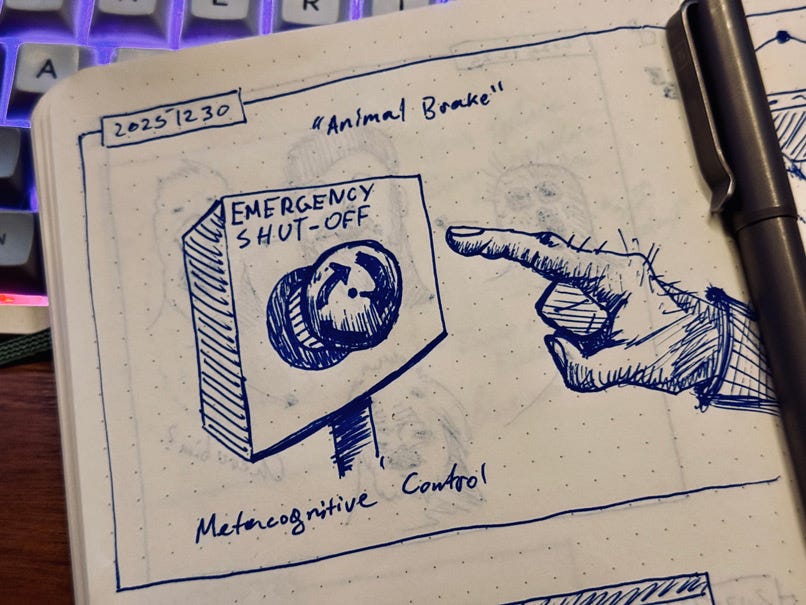 20251230
"Animal Brake"
EMERGENCY
SHUT-OFF
Metacognitive Control
A